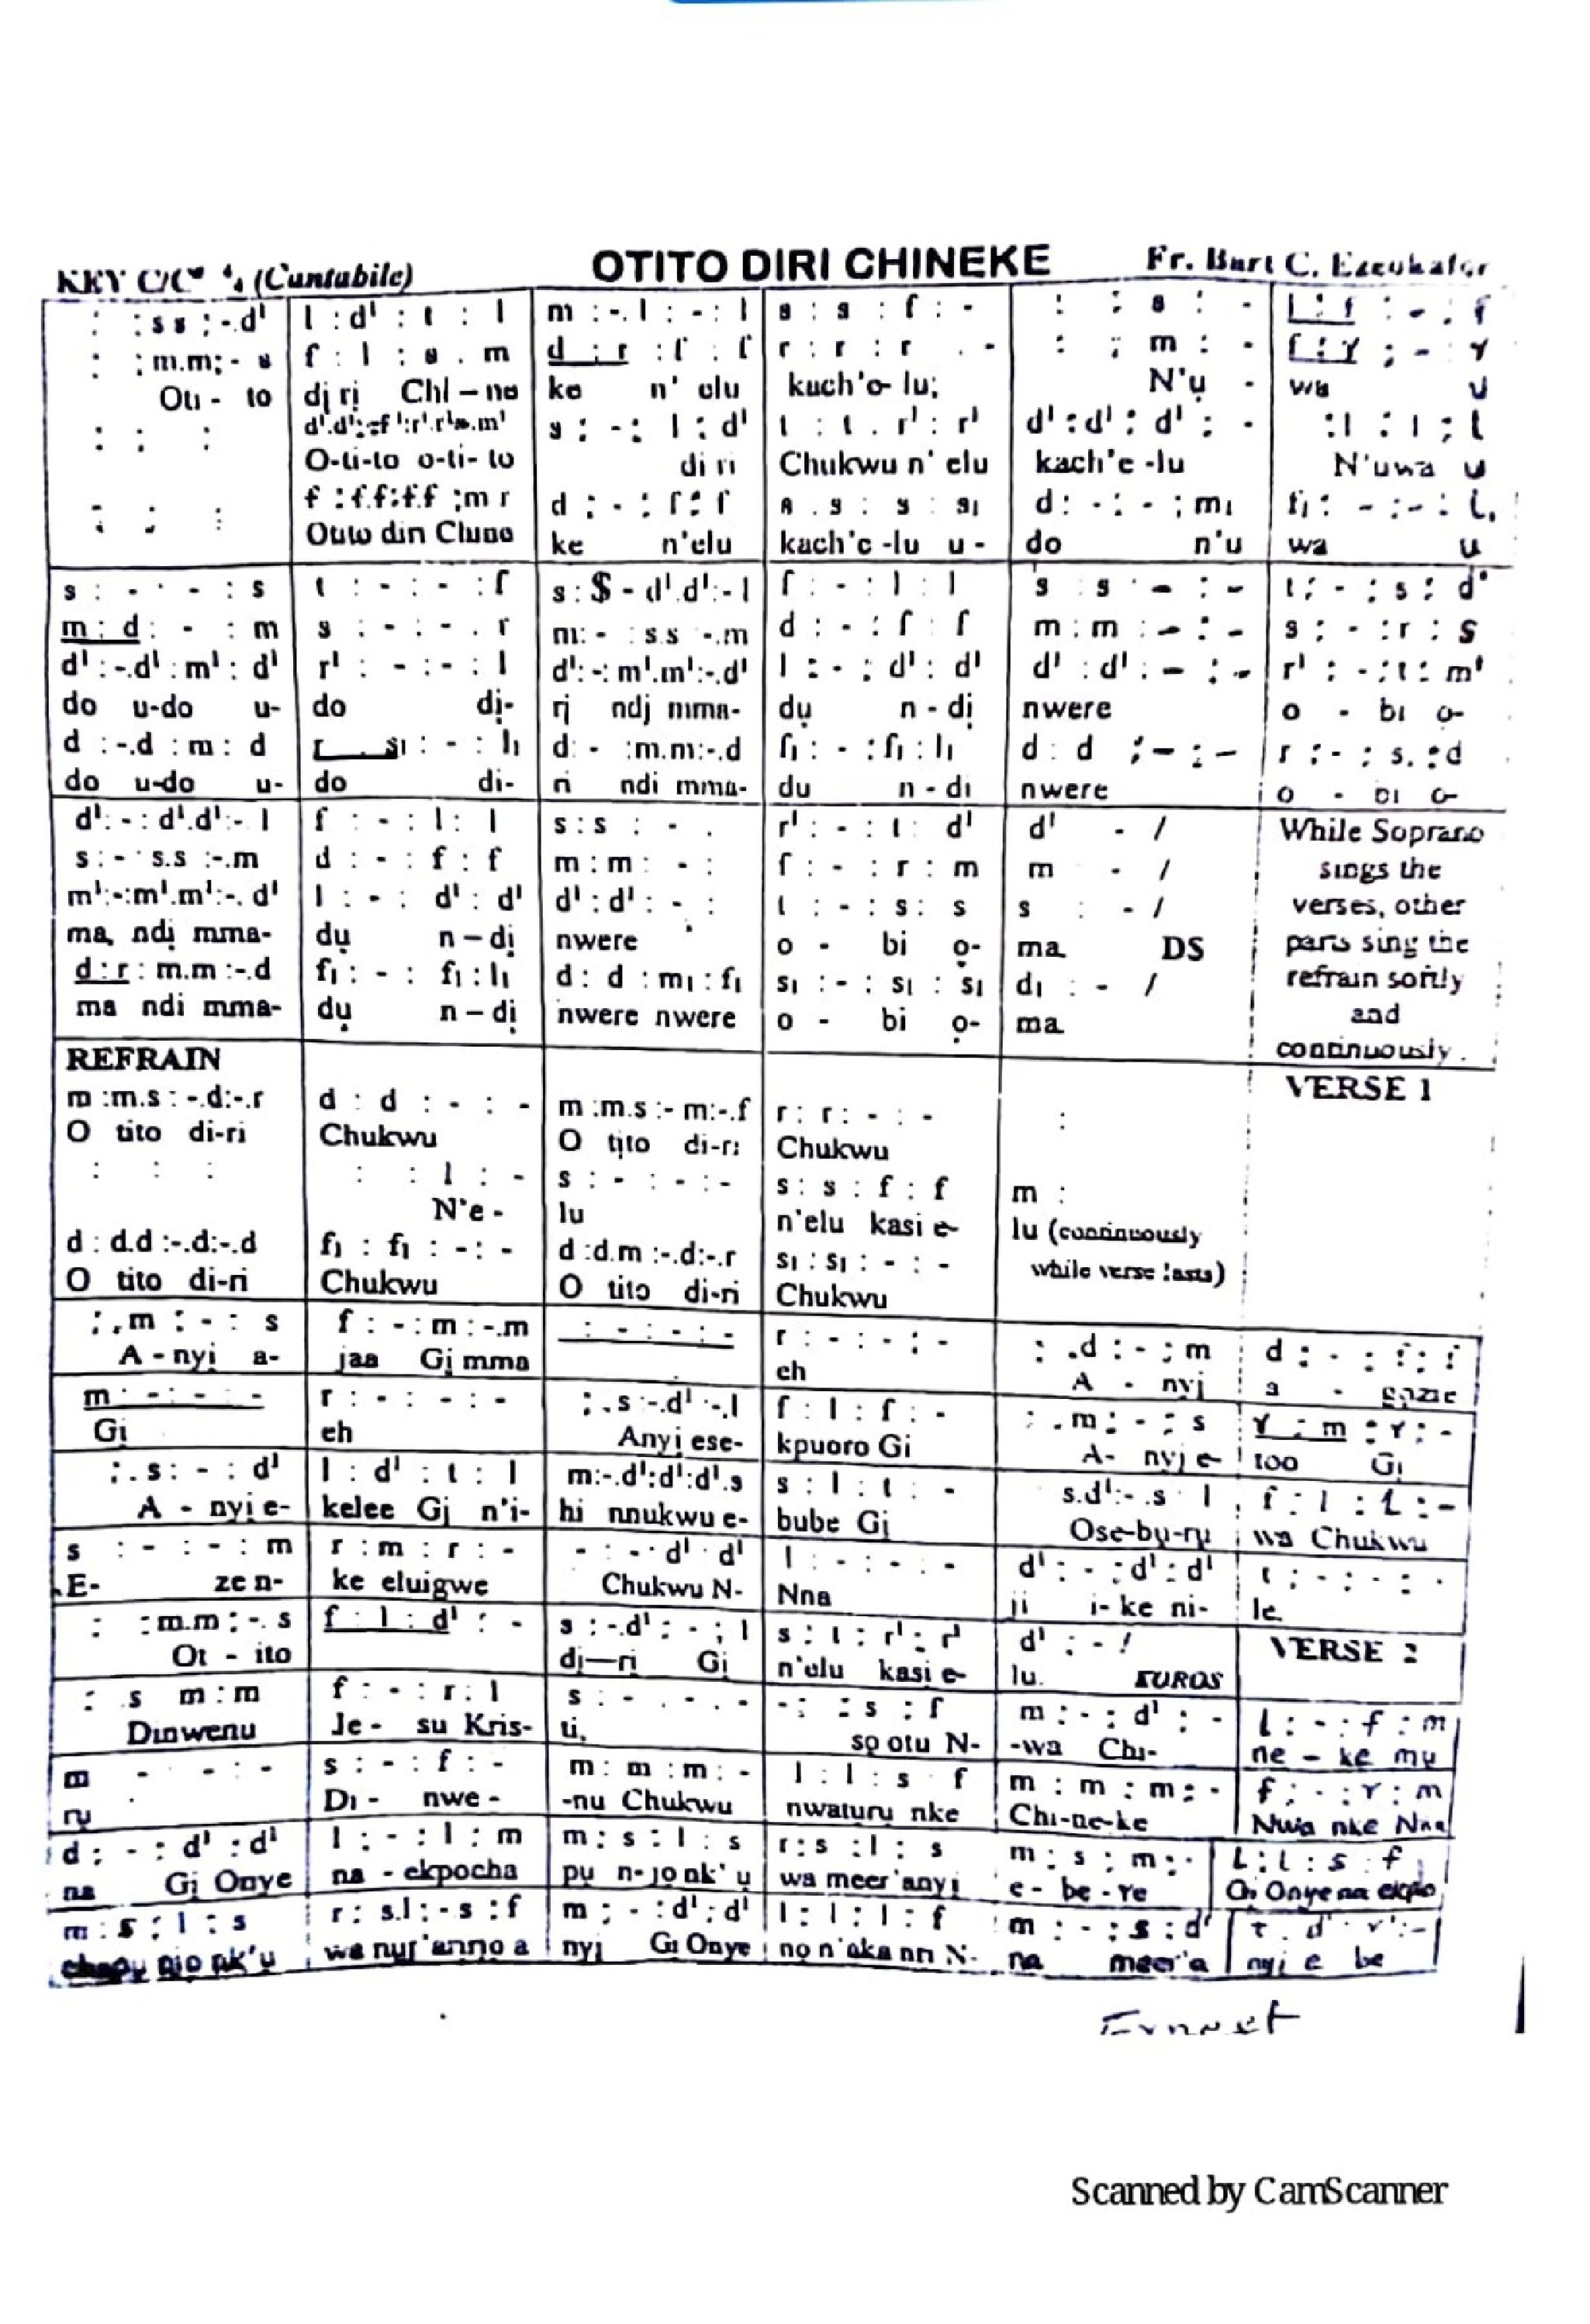 OTITO DIRI CHINEKE
KEY C/C (Cantabile) Fr. Bart C.
: : s s ; -.d' | l : d' : t : l | m : -. l : - : l | s : s : f : - | : ; s : - | l : f : - . f
: ; m.m; - s | f : l : s . m | d : r : f : f | r : r : r . - | : ; m : - | f : r ; - : r
Oti - to | di ri Chi – ne | ke n' elu | kach'o- lu; | N'ụ - | wa u
: : : | d'.d': -f':r'.r's.m' | s : -: l : d' | t : t . r' : r' | d' : d' : d' ; - | : l : l ; t
O-ti-to o-ti- to | di ri | Chukwu n' elu | kach'e -lu | N'uwa u
: : : | f : f.f:f.f ;m r | d ; - : f : f | s . s : s : s₁ | d: - : - ; m₁ | f₁ : - : - : l₁
Otito diri Chine | ke n'elu | kach'e -lu u - | do n'u | wa u
s : - · - : s | t : - : - : f | s : s - d'.d':- l | f : - : l : l | s : s - : - | t : - : s : d'
m : d : - : m | s : - : - . r | m: - : s.s -.m | d : - : f : f | m : m : - : - | s ; - : r : s
d' : -.d' : m' : d' | r' : - : - : l | d' : -: m'.m':-.d' | l : - : d' : d' | d' : d' : - : - | r' : - : t : m'
do u-do u- | do dị- | rị ndị mma- | dụ n - dị | nwere | o - bi ọ-
d : -.d : m : d | r s₁ : - : l₁ | d: - :m.m:-.d | f₁ : - : f₁ : l₁ | d : d ; - : - | r : - : s. : d
do u-do u- | do di- | ri ndi mma- | du n - di | nwere | o - bi o-
d': - : d'.d':- l | f : - : l : l | s : s : - . | r' : - : t : d' | d' - / | While Soprano
s : - · s.s :-.m | d : - : f : f | m : m : - : | f : - : r : m | m - / | sings the
m':-:m'.m':-. d' | l : - : d' : d' | d' : d' : - : | t : - : s : s | s : - / | verses, other
ma, ndị mma- | dụ n – dị | nwere | o - bi ọ- | ma DS | parts sing the
d : r : m.m :-.d | f₁ : - : f₁ : l₁ | d : d : m₁ : f₁ | s₁ : - : s₁ : s₁ | d₁ : - / | refrain softly
ma ndi mma- | dụ n – dị | nwere nwere | o - bi ọ- | ma | and
continuously.
REFRAIN
VERSE 1
m :m.s : -.d:-.r | d : d : - : - | m :m.s :- m:-.f | r : r : - : - | :
O tito di-ri | Chukwu | O tịto di-ri | Chukwu
: : : | : : l : - | s : - : - : - | s : s : f : f | m :
N'e - | lu | n'elu kasi e- | lu (continuously
d : d.d :-.d:-.d | f₁ : f₁ : - : - | d :d.m :-.d:-.r | s₁ : s₁ : - : - | while verse lasts)
O tito di-ri | Chukwu | O tito di-ri | Chukwu
: . m : - : s | f : - : m : -.m | : - : - : - | r : - : - : - | : .d : - ; m | d : - : f : f
A - nyị a- | jaa Gị mma | eh | A - nyị | a - gozie
m : - : - : - | r : - : - : - | ; . s :-.d' -.l | f : l : f : - | ; . m : - : s | r : m : r : -
Gị | eh | Anyị ese- | kpuoro Gị | A- nyị e- | too Gị
: . s : - : d' | l : d' : t : l | m:-.d':d':d'.s | s : l : t : - | s.d':- .s l | f : l : t : -
A - nyị e- | kelee Gị n'i- | hi nnukwu e- | bube Gị | Ose-bụ-rụ | wa Chukwu
s : - : - : m | r : m : r : - | - : - · d' d' | l : - : - : - | d' : - : d' : d' | t ; - : - : .
E- ze n- | ke eluigwe | Chukwu N- | Nna | ji i- ke ni- | le
: : m.m : -. s | f : l : d' : - | s : -.d' : - ; l | s : t : r' : r' | d' : - / | VERSE 2
Ot - ito | dị—ri Gị | n'elu kasi e- | lu.
: s m : m | f : - : r : l | s : - . - . - | - : : s : f | m : - : d' : - | l : - : f : m
Dinwenu | Je - su Kris- | ti, | sọ otu N- | -wa Chi- | ne – ke mụ
m - - : - | s : - : f : - | m : m : m : - | l : l : s f | m : m : m : - | f ; - : r : m
rụ | Di - nwe - | -nu Chukwu | nwaturu nke | Chi-ne-ke | Nwa nke Nna
d : - : d' : d' | l : - : l : m | m : s : l : s | r : s : l : s | m : s ; m : - | l : l : s . f
na Gị Onye | na - ekpocha | pụ n-jọ nk' ụ | wa meer'anyị | e - be - re | Onye na ekpo
m : s : l : s | r : s.l : - s : f | m ; - : d' : d' | l : l : l : f | m : - : s : d' | t . d' · r' : -
chapụ njọ nk'ụ | wa nụr'anno a | nyị Gị Onye | nọ n'aka nri N- | na meer'a | nyị e be
Scanned by CamScanner